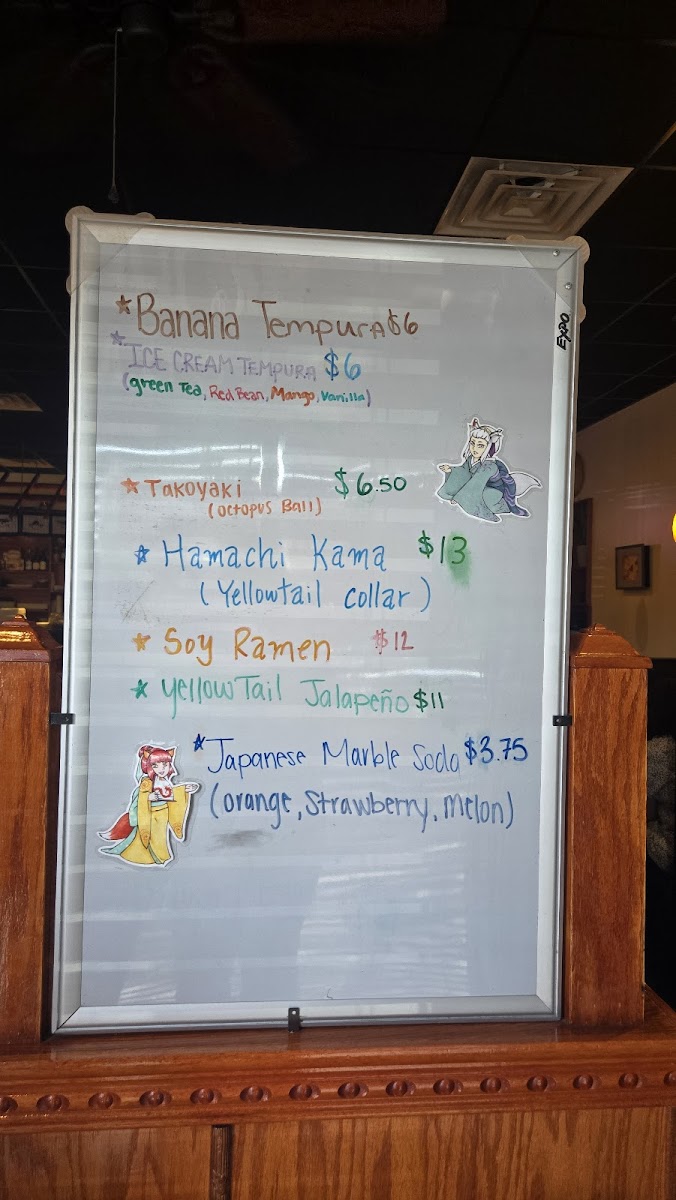 ★Banana Tempura $6
★ICE CREAM TEMPURA $6
(green Tea, Red Bean, Mango, Vanilla)
★Takoyaki $6.50
(octopus Ball)
★Hamachi Kama $13
(Yellowtail collar)
★Soy Ramen $12
★Yellow Tail Jalapeño $11
★Japanese Marble Soda $3.75
(orange, Strawberry, Melon)
EXPO